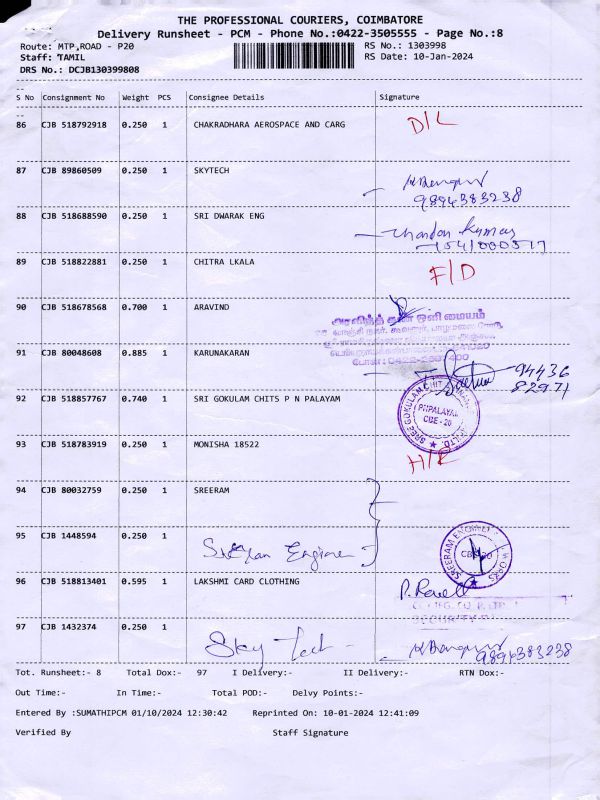 THE PROFESSIONAL COURIERS, COIMBATORE
Delivery Runsheet - PCM - Phone No.:0422-3505555 - Page No.:8
Route: MTP,ROAD - P20 RS No.: 1303998
Staff: TAMIL RS Date: 10-Jan-2024
DRS No.: DCJB130399808
S No Consignment No Weight PCS Consignee Details Signature
86 CJB 518792918 0.250 1 CHAKRADHARA AEROSPACE AND CARG D/L
87 CJB 89860509 0.250 1 SKYTECH
9894383238
88 CJB 518688590 0.250 1 SRI DWARAK ENG
89 CJB 518822881 0.250 1 CHITRA LKALA F/D
90 CJB 518678568 0.700 1 ARAVIND
அரவிந்த் ஒளி மையம்
91 CJB 80048608 0.885 1 KARUNAKARAN
94436
82971
92 CJB 518857767 0.740 1 SRI GOKULAM CHITS P N PALAYAM
PNPALAYAM
CBE - 20
93 CJB 518783919 0.250 1 MONISHA 18522
94 CJB 80032759 0.250 1 SREERAM
95 CJB 1448594 0.250 1
SREERAM
96 CJB 518813401 0.595 1 LAKSHMI CARD CLOTHING
97 CJB 1432374 0.250 1 Sky Tech
9894383238
Tot. Runsheet:- 8 Total Dox:- 97 I Delivery:- II Delivery:- RTN Dox:-
Out Time:- In Time:- Total POD:- Delvy Points:-
Entered By :SUMATHIPCM 01/10/2024 12:30:42 Reprinted On: 10-01-2024 12:41:09
Verified By Staff Signature